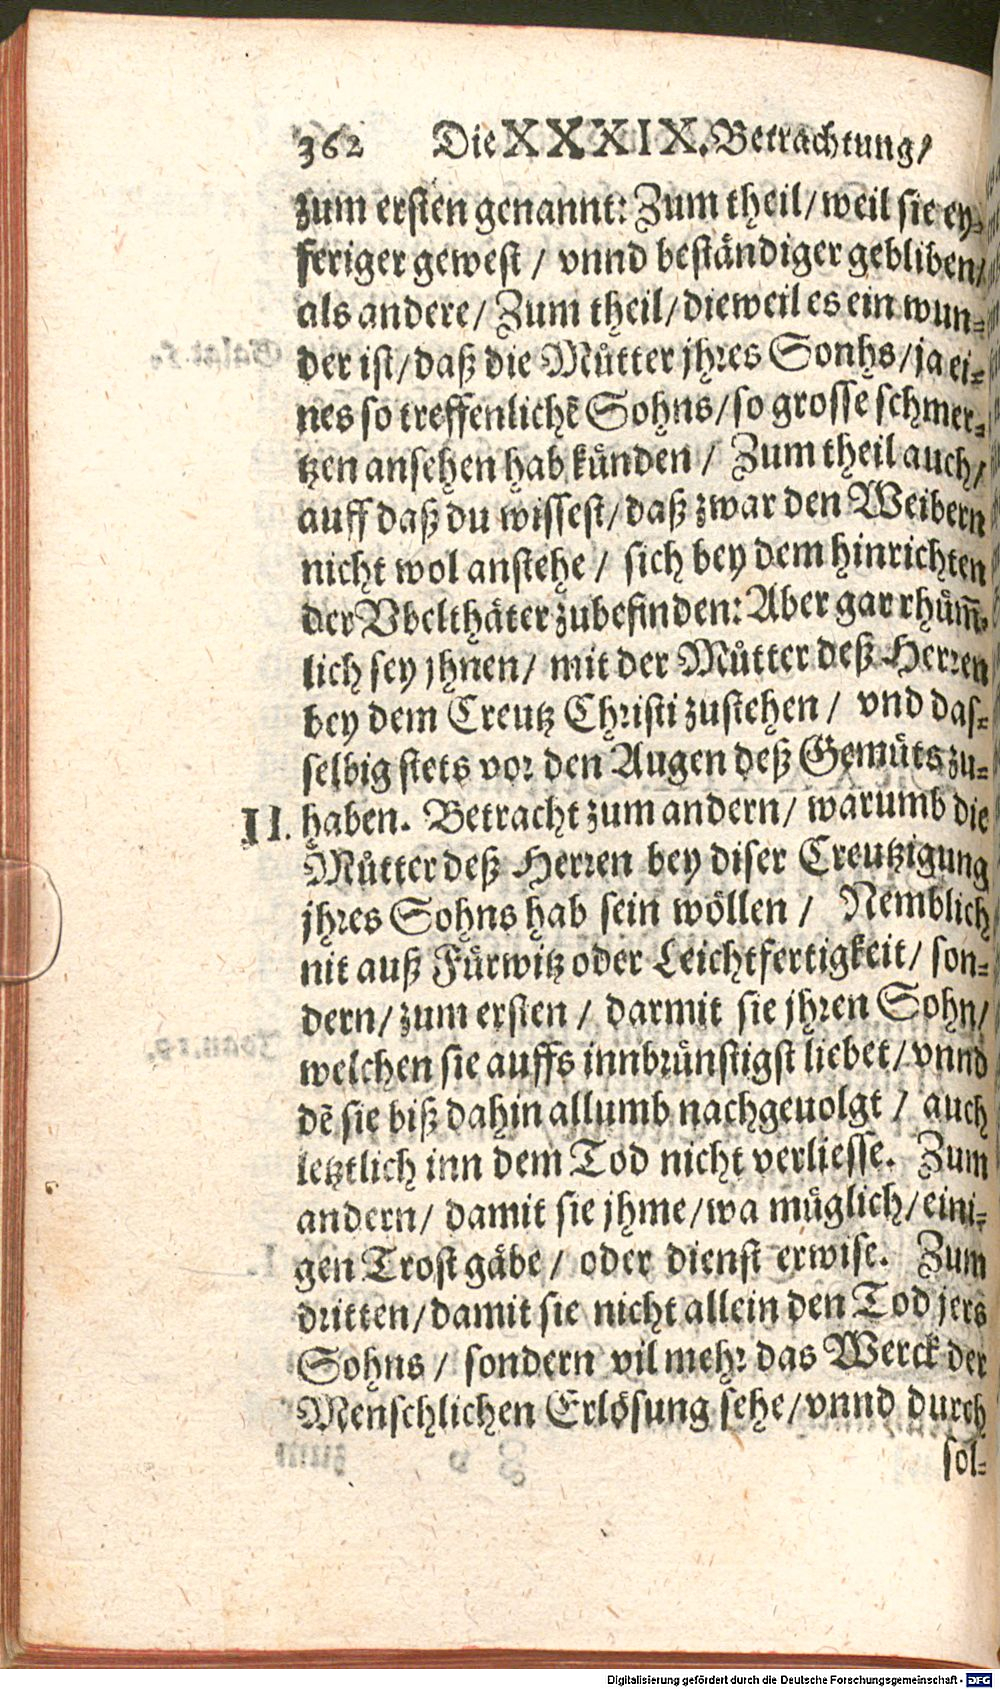 362 Die XXXIX. Betrachtung/
zum ersten genannt: Zum theil/ weil sie ey-
feriger gewest / vnnd beständiger gebliben/
als andere/ Zum theil/ dieweil es ein wun-
der ist/ daß die Můtter jhres Sonhs/ ja ei-
nes so treffenlichē Sohns/ so grosse schmer-
tzen ansehen hab künden / Zum theil auch/
auff daß du wissest/ daß zwar den Weibern
nicht wol anstehe / sich bey dem hinrichten
der Vbelthäter zubefinden: Aber gar rhům̄-
lich sey jhnen/ mit der Můtter deß Herren
bey dem Creutz Christi zustehen / vnd das-
selbig stets vor den Augen deß Gemüts zu-
II. haben. Betracht zum andern/ warumb die
Můtter deß Herren bey diser Creutzigung
jhres Sohns hab sein wöllen / Nemblich
nit auß Fürwitz oder Leichtfertigkeit/ son-
dern/ zum ersten / darmit sie jhren Sohn/
welchen sie auffs innbrünstigst liebet/ vnnd
dē sie biß dahin allumb nachgeuolgt / auch
letztlich inn dem Tod nicht verliesse. Zum
andern/ damit sie jhme/ wa müglich/ eini-
gen Trost gäbe / oder dienst erwise. Zum
dritten/ damit sie nicht allein den Tod jers
Sohns / sondern vil mehr das Werck der
Menschlichen Erlösung sehe/ vnnd durch
sol-
Digitalisierung gefördert durch die Deutsche Forschungsgemeinschaft - DFG